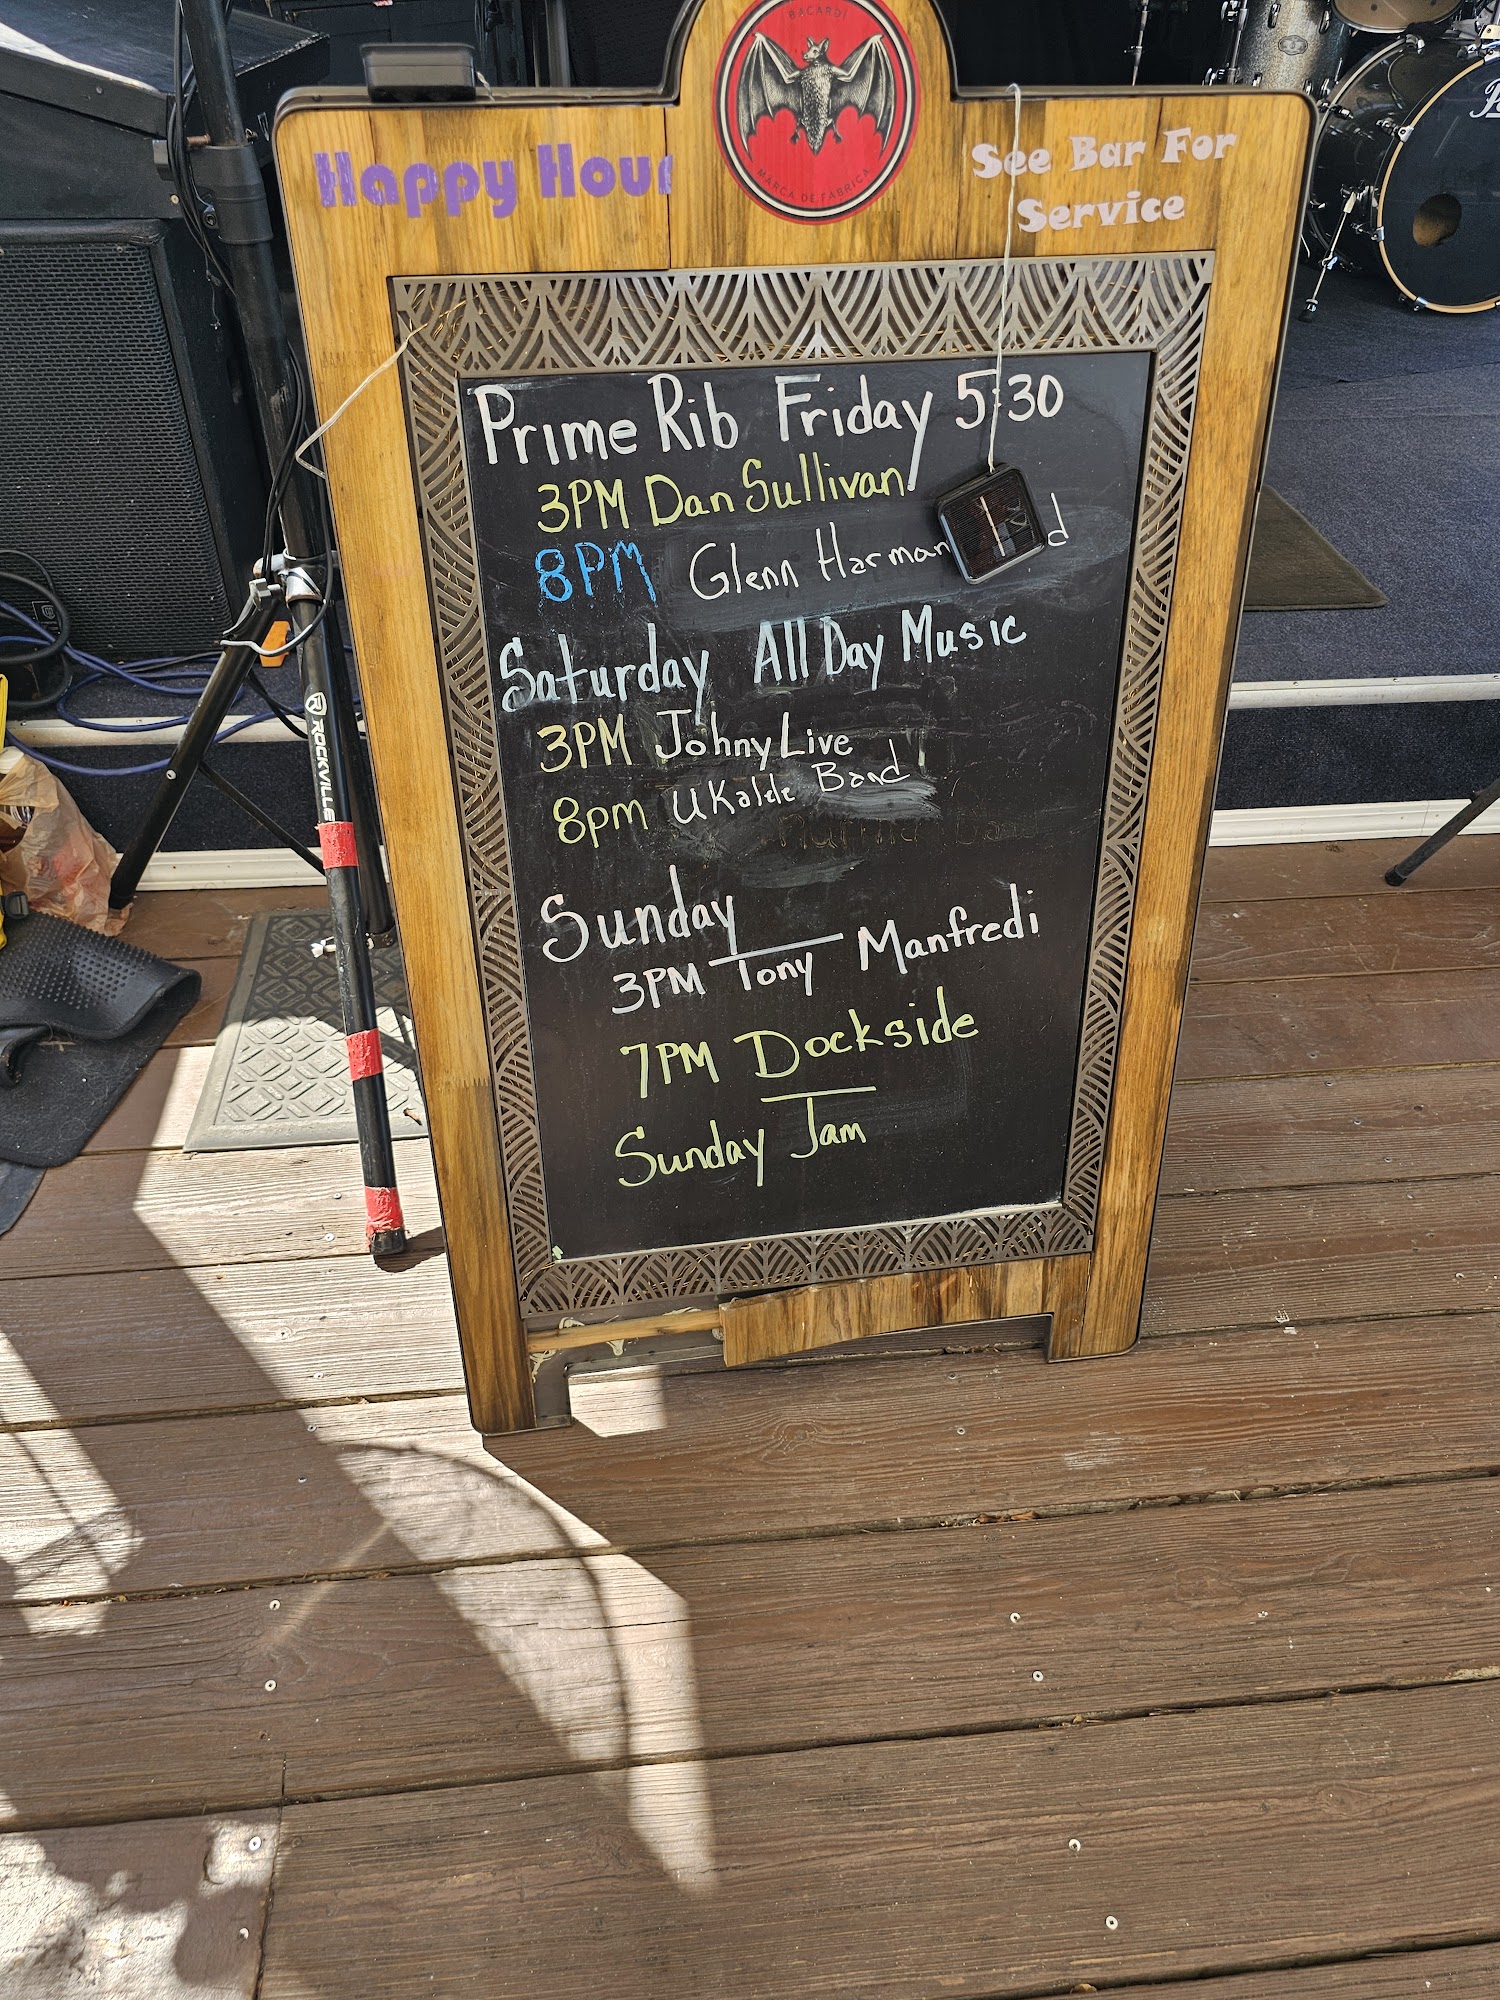 BACARDÍ
MARCA DE FABRICA
Happy Hour
See Bar For
Service
Prime Rib Friday 5:30
3PM Dan Sullivan
8PM Glenn Harman
Saturday All Day Music
3PM Johny Live
8pm UKalele Band
Sunday
3PM Tony Manfredi
7PM Dockside
Sunday Jam
ROCKVILLE